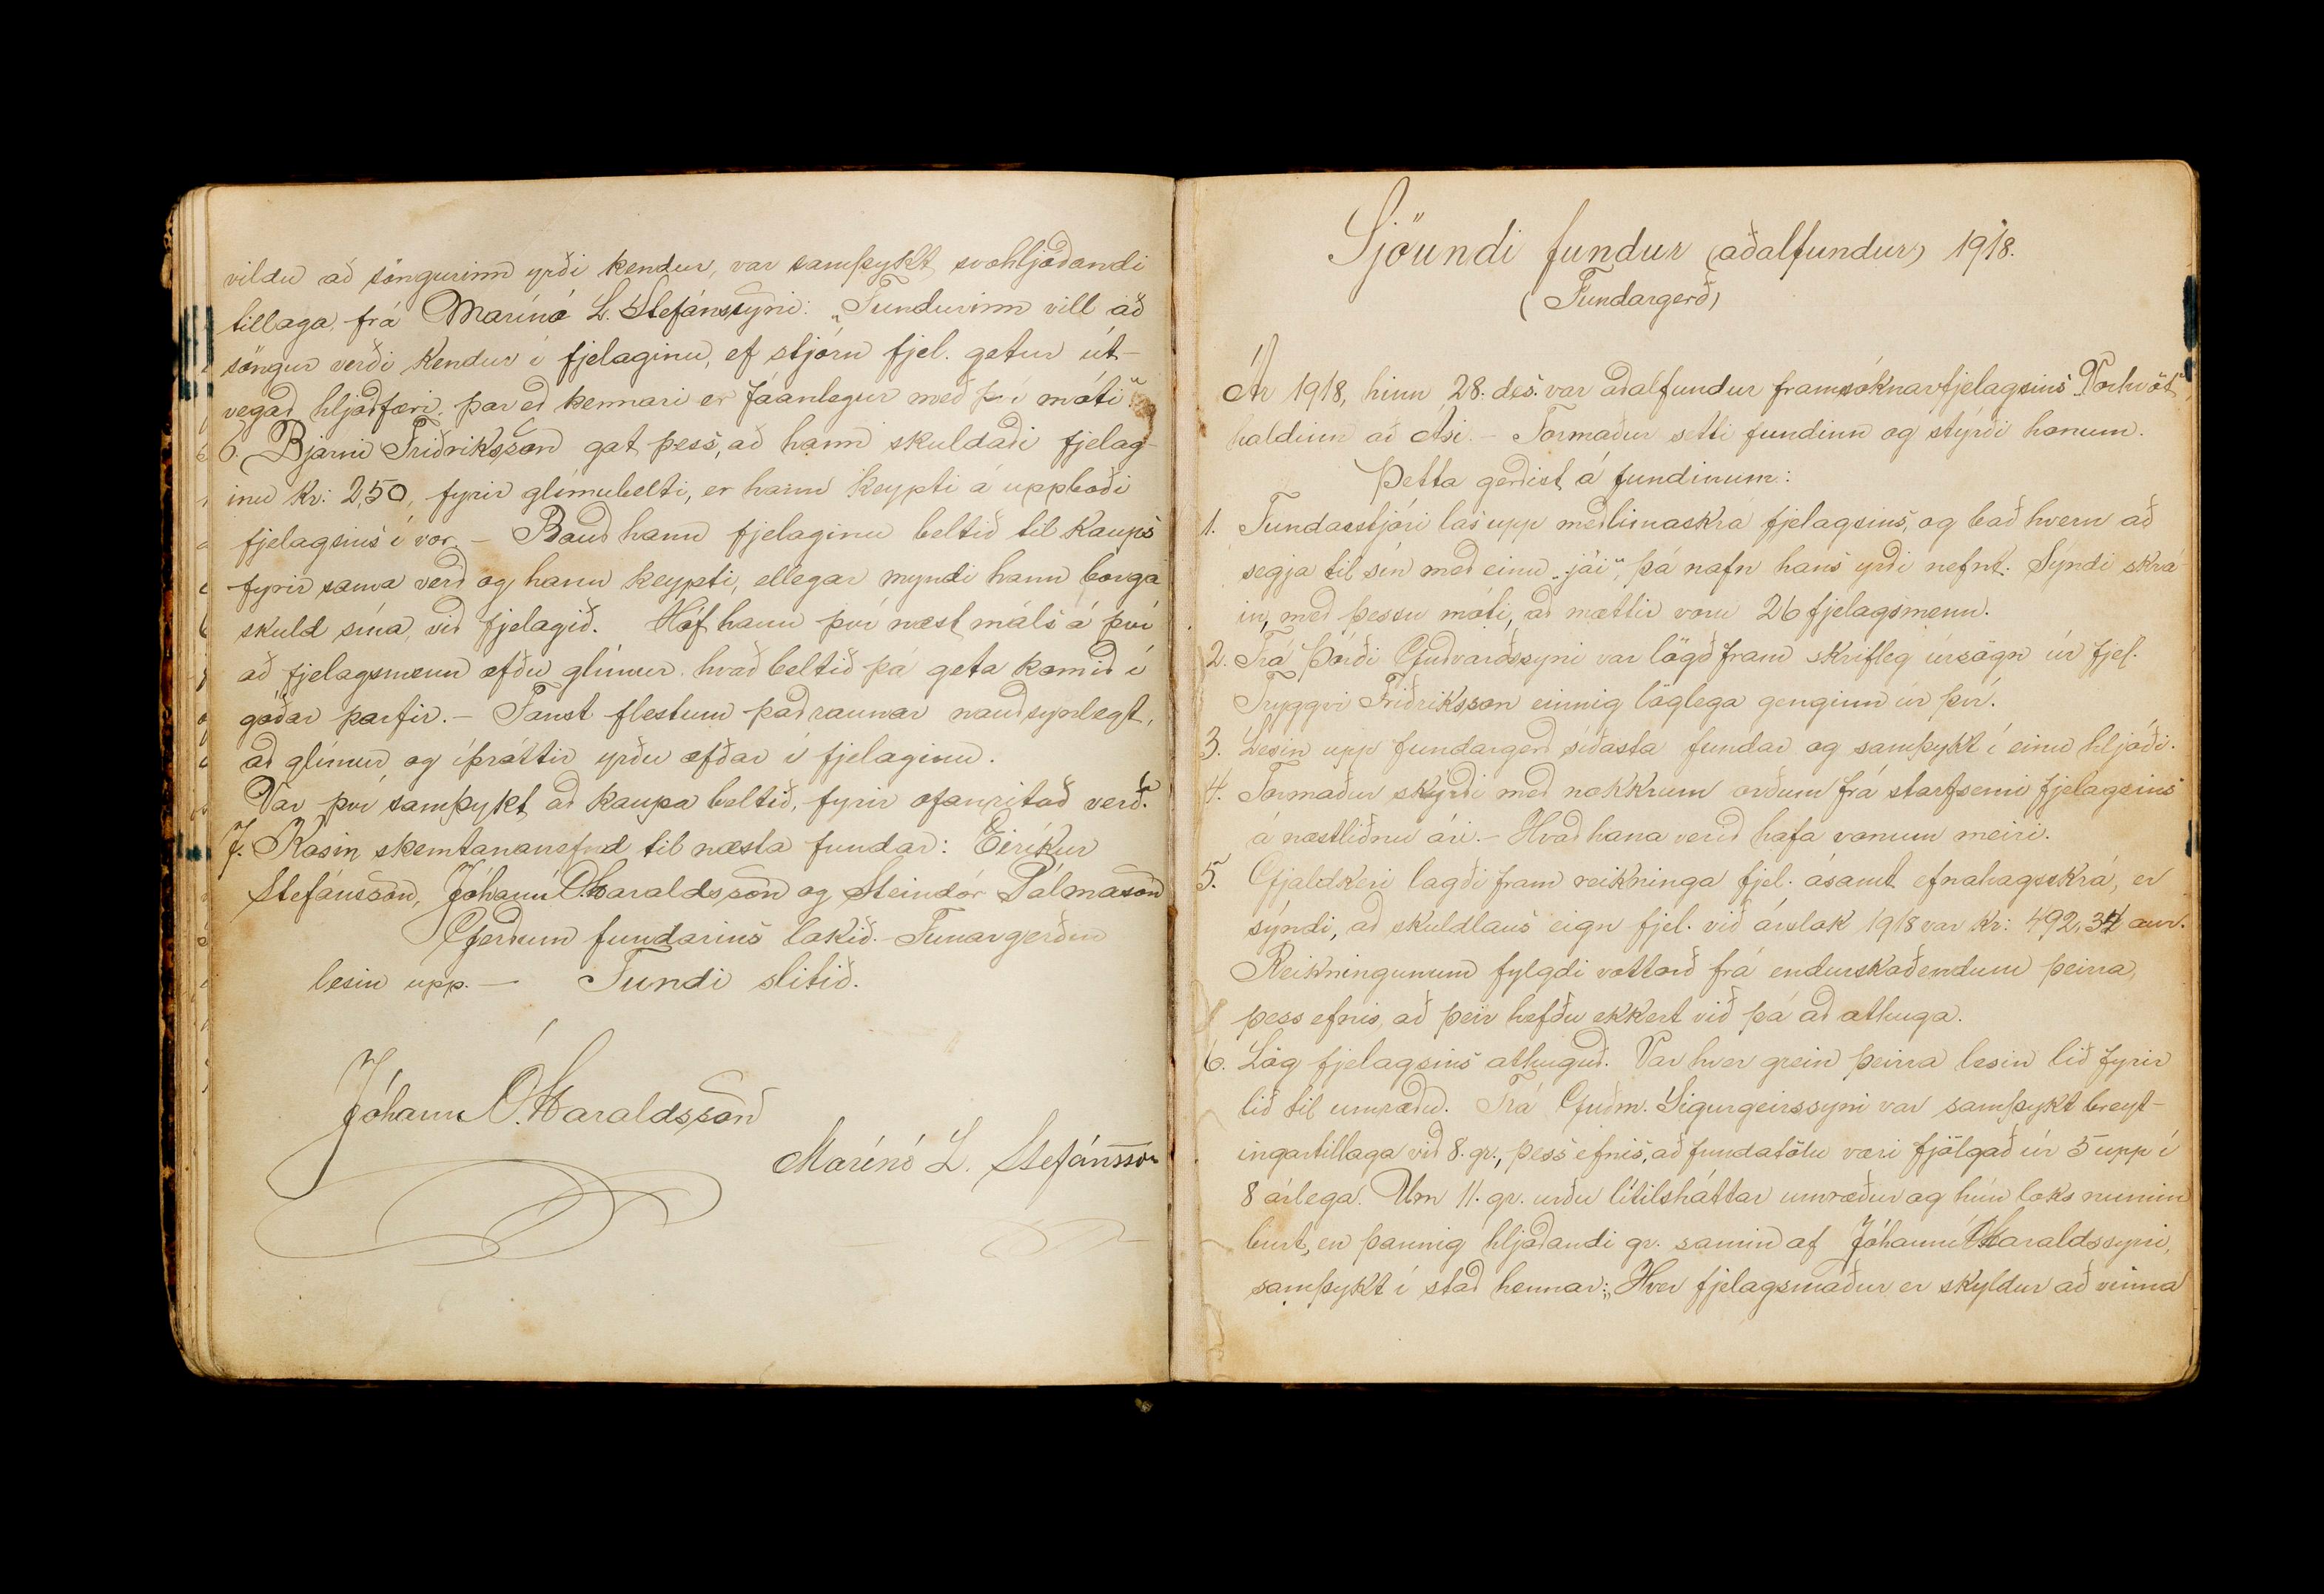 vildu að söngurinn yrði kendur, var samþykt svohljóðandi
tillaga frá Marínó L. Stefánssyni: „Fundurinn vill að
söngur verði kendur í fjelaginu, ef stjórn fjel. getur út-
vegað hljóðfæri, þar eð kennari er fáanlegur með því móti“.
6. Bjarni Friðriksson gat þess, að hann skuldaði fjelag-
inu kr: 2,50, fyrir glímubelti, er hann keypti á uppboði
fjelagsins í vor. – Bauð hann fjelaginu beltið til kaups
fyrir sama verð og hann keypti, ellegar myndi hann borga
skuld sína við fjelagið. Hóf hann því næst máls á því
að fjelagsmenn æfðu glímur, hvað beltið þá geta komið í
góðar þarfir. – Fanst flestum það raunar nauðsynlegt,
að glímur og íþróttir yrðu æfðar í fjelaginu.
Var því samþykt að kaupa beltið, fyrir ofanritað verð.
7. Kosin skemtananefnd til næsta fundar: Eiríkur
Stefánsson, Jóhann Ó. Haraldsson og Steindór Pálmason
Gerðum fundarins lokið. – Funargerðin
lesin upp. – Fundi slitið.
Jóhann Ó. Haraldsson
Marínó L. Stefánsson
Sjöundi fundur (aðalfundur) 1918.
(Fundargerð)
Ár 1918, hinn 28. des. var aðalfundur framsóknarfjelagsins „Þorhvöt“,
haldinn að Ási. – Formaður setti fundinn og stýrði honum.
Þetta gerðist á fundinum:
1. Fundarstjóri las upp meðlimaskrá fjelagsins, og bað hvern að
segja til sín með einu „jái“, þá nafn hans yrði nefnt. Sýndi skrá-
in, með þessu móti, að mættir voru 26 fjelagsmenn.
2. Frá Þórði Guðvarðssyni var lögð fram skrifleg úrsögn úr fjel.
Tryggvi Friðriksson einnig löglega genginn úr því.
3. Lesin upp fundargerð síðasta fundar og samþykt í einu hljóði.
4. Formaður skýrði með nokkrum orðum frá starfsemi fjelagsins
á næstliðnu ári. – Hvað hana verið hafa vonum meiri.
5. Gjaldkeri lagði fram reikninga fjel. ásamt efnahagsskrá, er
sýndi, að skuldlaus eign fjel. við árslok 1918 var kr: 492,34 aur.
Reikningunum fylgdi vottorð frá endurskoðendum þeirra,
þess efnis, að þeir hefðu ekkert við þá að athuga.
6. Lög fjelagsins athuguð. Var hver grein þeirra lesin lið fyrir
lið til umræðu. Frá Guðm. Sigurgeirssyni var samþykt breyt-
ingartillaga við 8. gr., þess efnis, að fundatölu væri fjölgað úr 5 upp í
8 árlega. Um 11. gr. urðu lítilsháttar umræður og hún loks numin
burt, en þannig hljóðandi gr. samin af Jóhanni Ó. Haraldssyni,
samþykt í stað hennar: „Hver fjelagsmaður er skyldur að vinna